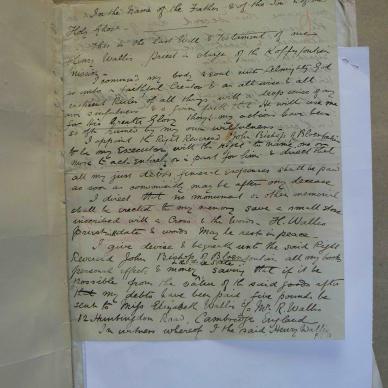 In the Name of the Father & of the Son & of the
Holy Ghost.
This is the last Will & Testament of me
Henry Waller Priest in charge of the Koffyfontein
Mission.
I commend my body & soul unto Almighty God
as unto a faithful Creator & an all wise & all
Ruler of all things, with a deep sense of my
own sinfulness & a firm faith that He will use me
for His Greater Glory though my actions have been
so often ruined by my own wilfulness.
I appoint the Right Reverend John Bishop of Bloemfontein
to be my Executor with the right to name
to act entirely or in part for him & direct that
all my just debts funeral expenses shall be paid
as soon as conveniently may be after my decease
I direct that no monument or other memorial
shall be erected to my memory save a small stone
inscribed with a Cross & the words H. Waller
Priest date & words May he rest in peace
I give devise & bequeath unto the said Right
Reverend John Bishop of Bloemfontein all my books
personal effects & money saving that if it be
possible from the value of the said goods after
that my debts have been paid five pounds be
sent to Miss Elizabeth Waller c/o Mr R. Waller
12 Huntingdon Road, Cambridge England
In witness whereof I the said Henry Waller